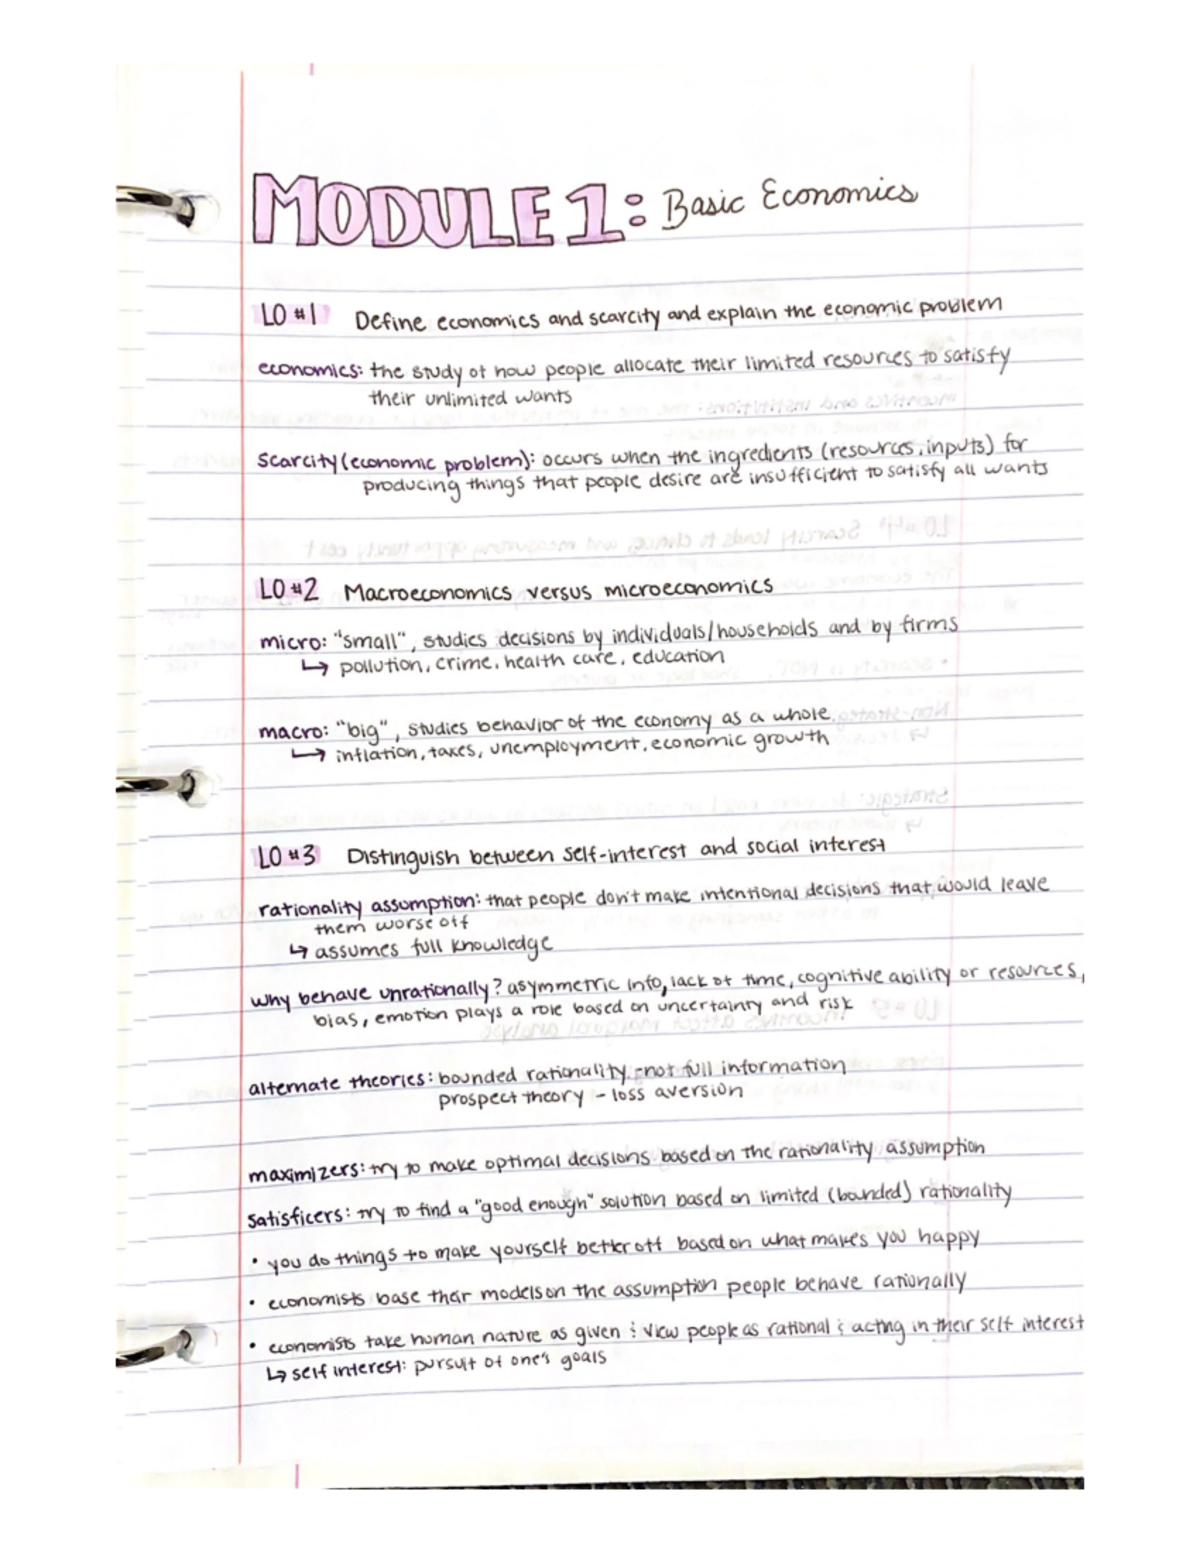 MODULE 1: Basic Economics
LO #1 Define economics and scarcity and explain the economic problem
economics: the study of how people allocate their limited resources to satisfy
their unlimited wants
scarcity (economic problem): occurs when the ingredients (resources, inputs) for
producing things that people desire are insufficient to satisfy all wants
LO #2 Macroeconomics versus microeconomics
micro: "small", studies decisions by individuals/households and by firms
↳ pollution, crime, health care, education
macro: "big", studies behavior of the economy as a whole
↳ inflation, taxes, unemployment, economic growth
LO #3 Distinguish between self-interest and social interest
rationality assumption: that people don't make intentional decisions that would leave
them worse off
↳ assumes full knowledge
why behave unrationally? asymmetric info, lack of time, cognitive ability or resources,
bias, emotion plays a role based on uncertainty and risk
alternate theories: bounded rationality - not full information
prospect theory - loss aversion
maximizers: try to make optimal decisions based on the rationality assumption
satisficers: try to find a "good enough" solution based on limited (bounded) rationality
• you do things to make yourself better off based on what makes you happy
• economists base their models on the assumption people behave rationally
• economists take human nature as given & view people as rational & acting in their self interest
↳ self interest: pursuit of one's goals